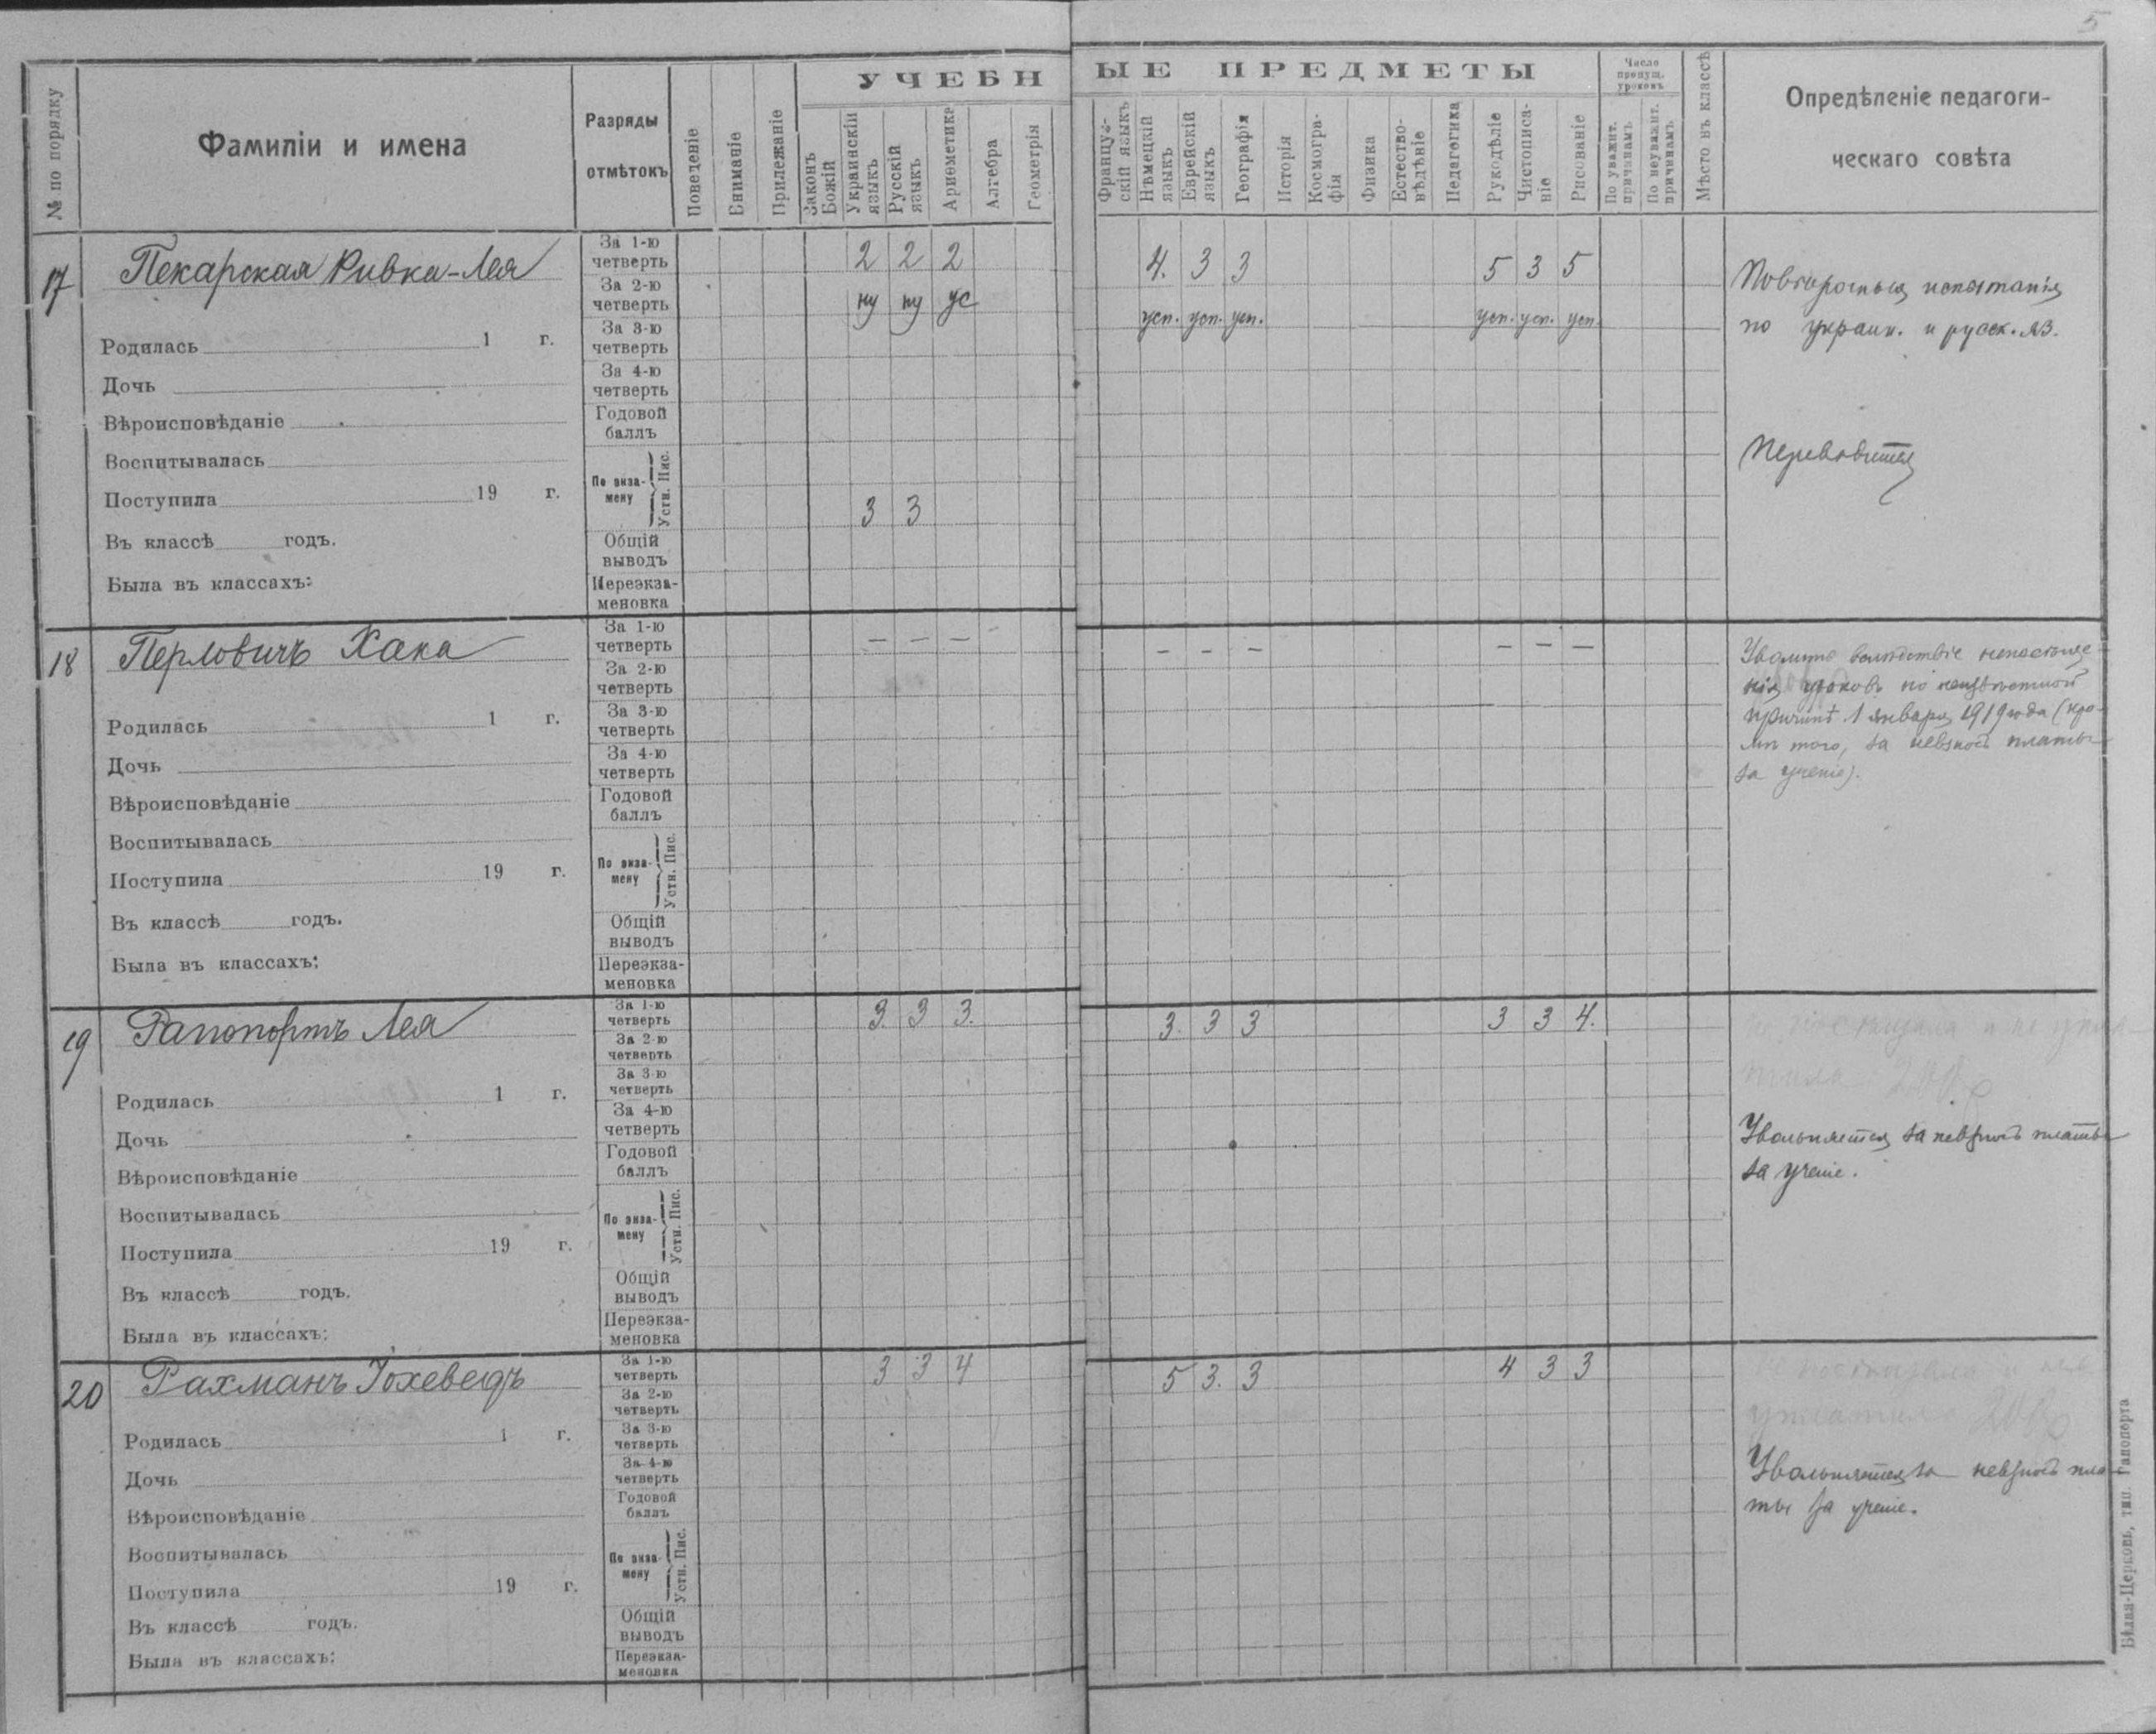 5
УЧЕБН
ЫЕ ПРЕДМЕТЫ
№ по порядку
Фамиліи и имена
Разряды
отмѣтокъ
Поведеніе
Вниманіе
Прилежаніе
Законъ
Божій
Украинскій
языкъ
Русскій
языкъ
Ариѳметика
Алгебра
Геометрія
Француз-
скій языкъ
Нѣмецкій
языкъ
Еврейскій
языкъ
Географія
Исторія
Космогра-
фія
Физика
Естество-
вѣдѣніе
Педагогика
Рукодѣліе
Чистописа-
ніе
Рисованіе
Число
пропущ.
уроковъ
По уважит.
причинамъ
По неуважит.
причинамъ
Мѣсто въ классѣ
Опредѣленіе педагоги-
ческаго совѣта
17 Пекарская Ривка-Лея
За 1-ю
четверть
2 2 2 4. 3 3 5 3 5
За 2-ю
четверть
ну ну ус усп. усп. усп. усп. усп. усп.
За 3-ю
четверть
За 4-ю
четверть
Годовой
баллъ
По экза-
мену
Устн. Пис.
3 3
Общій
выводъ
Переэкза-
меновка
Родилась 1 г.
Дочь
Вѣроисповѣданіе
Воспитывалась
Поступила 19 г.
Въ классѣ годъ.
Была въ классахъ:
Повторочныя испытанія
по украин. и русск. яз.
Переводится
18 Перловичъ Хана
За 1-ю
четверть
— — — — — — — — —
За 2-ю
четверть
За 3-ю
четверть
За 4-ю
четверть
Годовой
баллъ
По экза-
мену
Устн. Пис.
Общій
выводъ
Переэкза-
меновка
Родилась 1 г.
Дочь
Вѣроисповѣданіе
Воспитывалась
Поступила 19 г.
Въ классѣ годъ.
Была въ классахъ:
вслѣдствіе непосѣще-
нія уроковъ по неизвѣстной
причинѣ 1 января 1919 года (кро-
мѣ того, за невзносъ платы
за ученіе).
19 Рапопортъ Лея
За 1-ю
четверть
3. 3 3. 3. 3 3 3 3 4.
За 2-ю
четверть
За 3-ю
четверть
За 4-ю
четверть
Годовой
баллъ
По экза-
мену
Устн. Пис.
Общій
выводъ
Переэкза-
меновка
Родилась 1 г.
Дочь
Вѣроисповѣданіе
Воспитывалась
Поступила 19 г.
Въ классѣ годъ.
Была въ классахъ:
Увольняется за невзносъ платы
за ученіе.
20 Рахманъ Іохеведъ
За 1-ю
четверть
3 3 4 5 3. 3 4 3 3
За 2-ю
четверть
За 3-ю
четверть
За 4-ю
четверть
Годовой
баллъ
По экза-
мену
Устн. Пис.
Общій
выводъ
Переэкза-
меновка
Родилась 1 г.
Дочь
Вѣроисповѣданіе
Воспитывалась
Поступила 19 г.
Въ классѣ годъ.
Была въ классахъ:
Увольняется за невзносъ пла-
ты за ученіе.
Бѣлая-Церковь, тип. Рапопорта